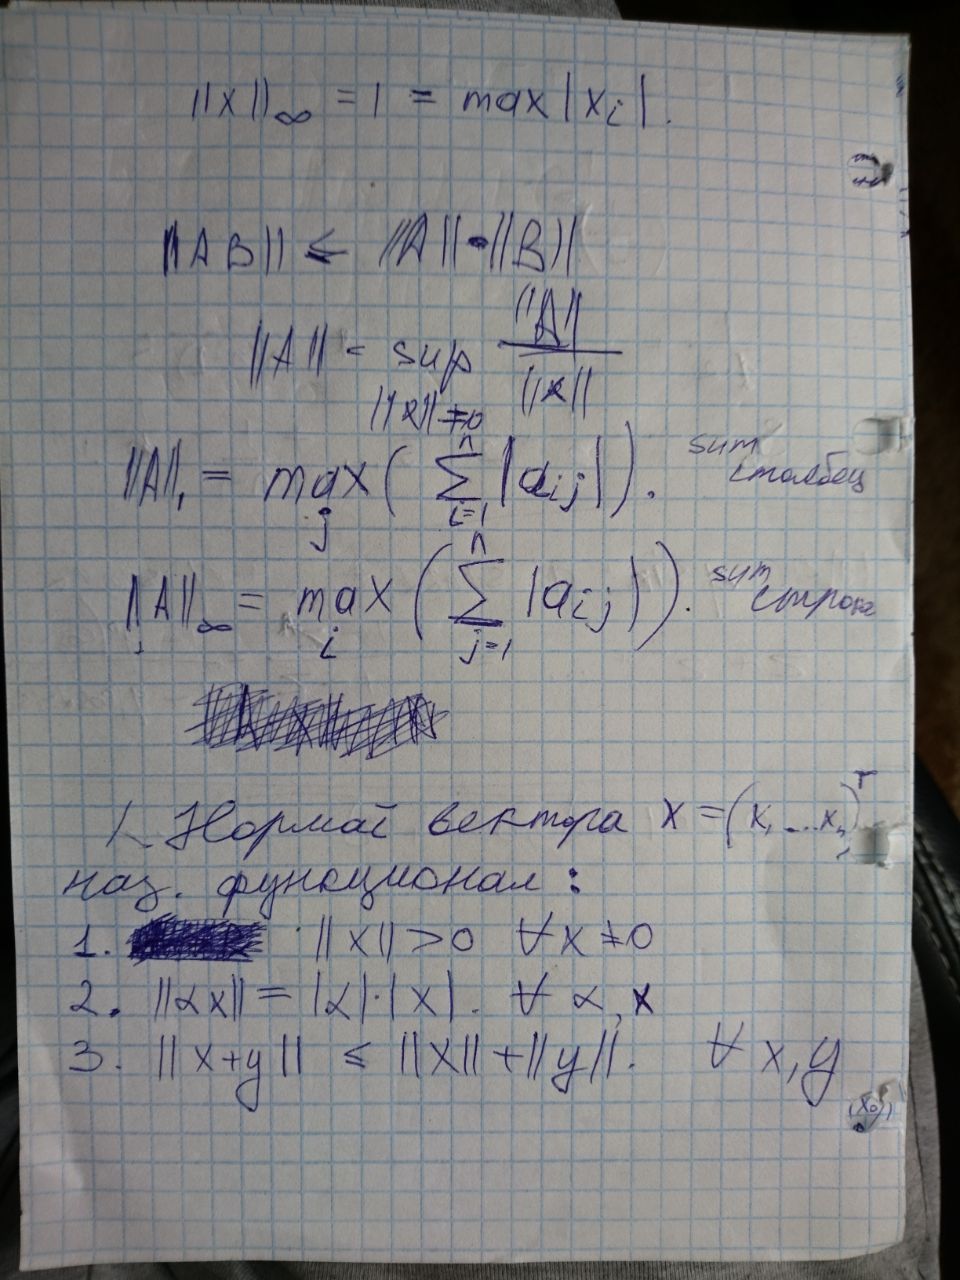 ||x||∞ = 1 = max |xᵢ|.
||AB|| ≤ ||A||•||B||
||A|| = sup ||A||
||x||≠0 ||x||
||A||₁ = max ( n ∑ i=1 |aᵢⱼ| ). sum
j столбец
||A||∞ = max ( n ∑ j=1 |aᵢⱼ| ). sum
i строка
1. Нормой вектора x = (x₁ ... xₙ)ᵀ
наз. функционал:
1. ||x|| > 0 ∀x ≠ 0
2. ||αx|| = |α|·|x|. ∀ α, x
3. ||x+y|| ≤ ||x|| + ||y||. ∀ x, y